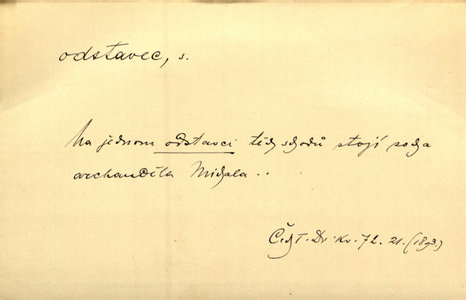 odstavec, s.
Na jednom odstavci těch schodů stojí socha
archanděla Michala..
Kv. 72. 21. (1893.)